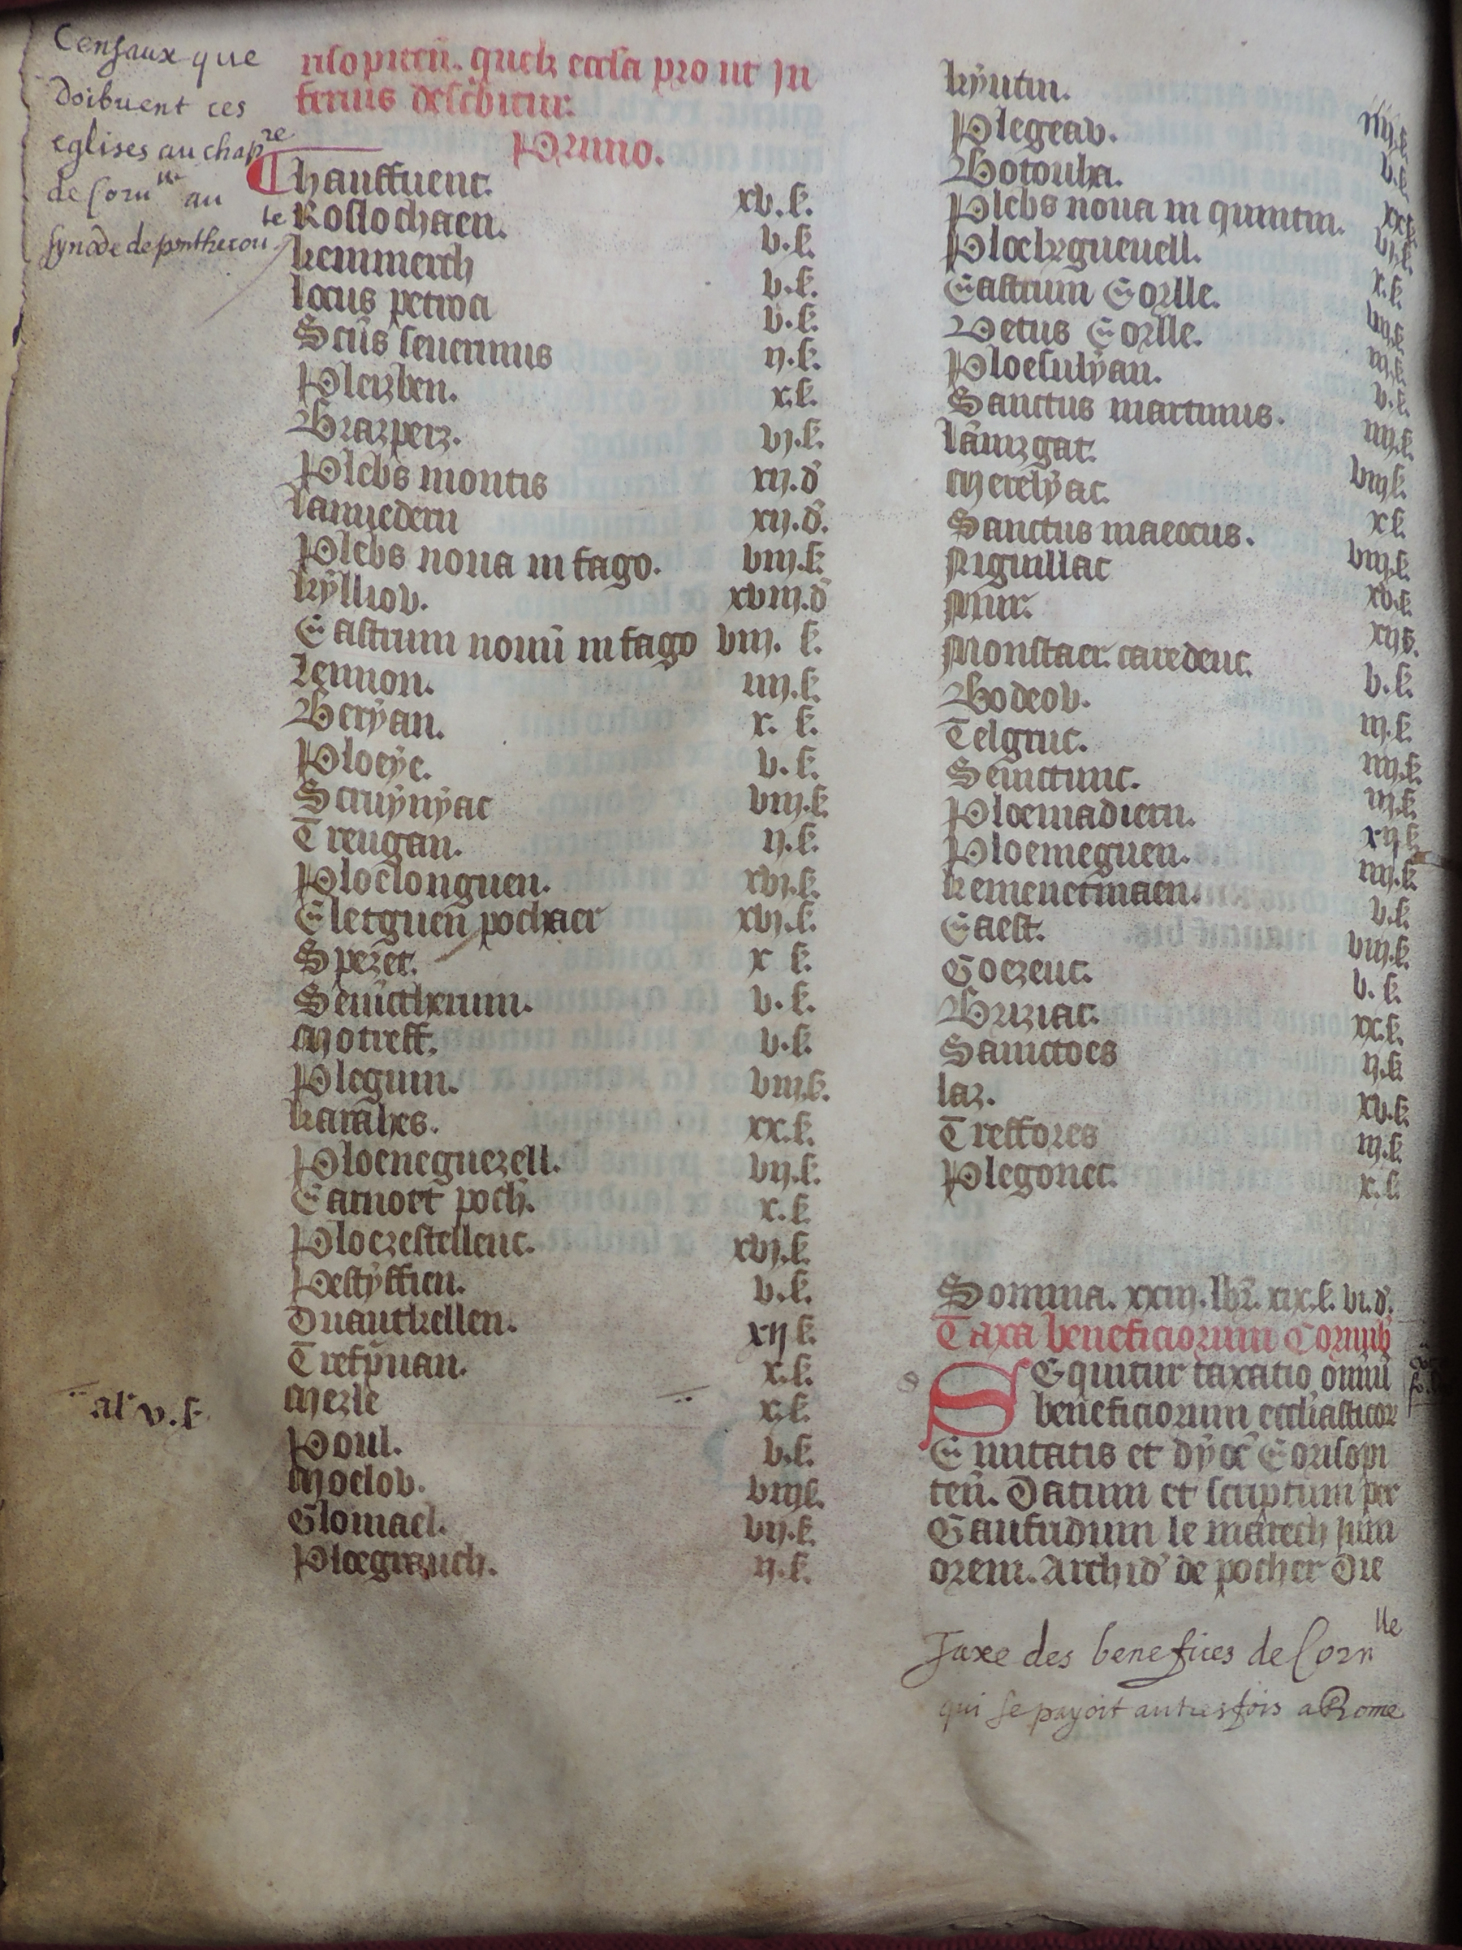 Censaux que
doibuent ces
eglises au chapre
de Cornlle au
synode de penthecou
te
risopiten. quelz ecclia pro ut In
ferius describitur.
Primo.
Chauffuenc. xv.s.
Roslochaen. v.s.
kemmerch v.s.
locus petroci v.s.
Sctus seuerinus ij.s.
Pleizben. x.s.
Brazperz. vj.s.
Plebs montis xij.d
lannedern xij.d.
Plebs noua in fago. viij.s.
kylliov. xviij.d
Castrum nouum in fago viij. s.
Lennon. iiij.s.
Beryan. x. s.
Ploeye. v.s.
Scruynyac viij.s.
Treugan. ij.s.
Ploelonguen. xvj.s.
Cletguen pochaer xvj.s.
Spezet. x s.
Seincthernin. v.s.
Motreff. v.s.
Pleguin. viij.s.
karahes. xx.s.
Ploeneguezell. vij.s.
Carnoet poch. x.s.
Ploezestellenc. xvj.s.
Pestyffien. v.s.
Duautkellen. xij s.
Trefynan. x.s.
Merle x.s.
al' v.s.
Poul. v.s.
Moelov. viijs.
Glomael. vij.s.
Ploegrauch. ij.s.
kyntin. iiij.s.
Plegeav. v.s.
Botouha. xx.s.
Plebs noua in quintin. vj.s.
Ploekrgueuell. x.s.
Castrum Corlle. viij.s.
Vetus Corlle. iij.s.
Ploesulyan. v.s.
Sanctus martinus. iiij.s.
lanizgat. viijs.
Merelyac. x s.
Sanctus maeocus. viij.s.
Niguillac xv.s.
Mur. xij s.
Monstaer caredeuc. v.s.
Bodeov. iij.s.
Telgruc. iiij.s.
Seinctnic. iij.s.
Ploemadiern. xij.s.
Ploemeguen. iiij.s.
kemenetmaen. v.s.
Cast. viij.s.
Goezeuc. v.s.
Briziac. xx.s.
Sainctoes ij.s
laz. xv.s.
Treffores iij.s.
Plegonec. x.s.
Somma. xxiij.lbr. xix.s. vi.d.
Taxa beneficiorum Cornub
SEquitur taxatio omniu
beneficiorum eccliasticor
Ciuitatis et dyoc Corisopi
ten. Datum et scriptum per
Gaufridum le marech Juni
orem. Archid' de pocher Die
Taxe des benefices de Cornlle
qui se payoit autresfois a Rome